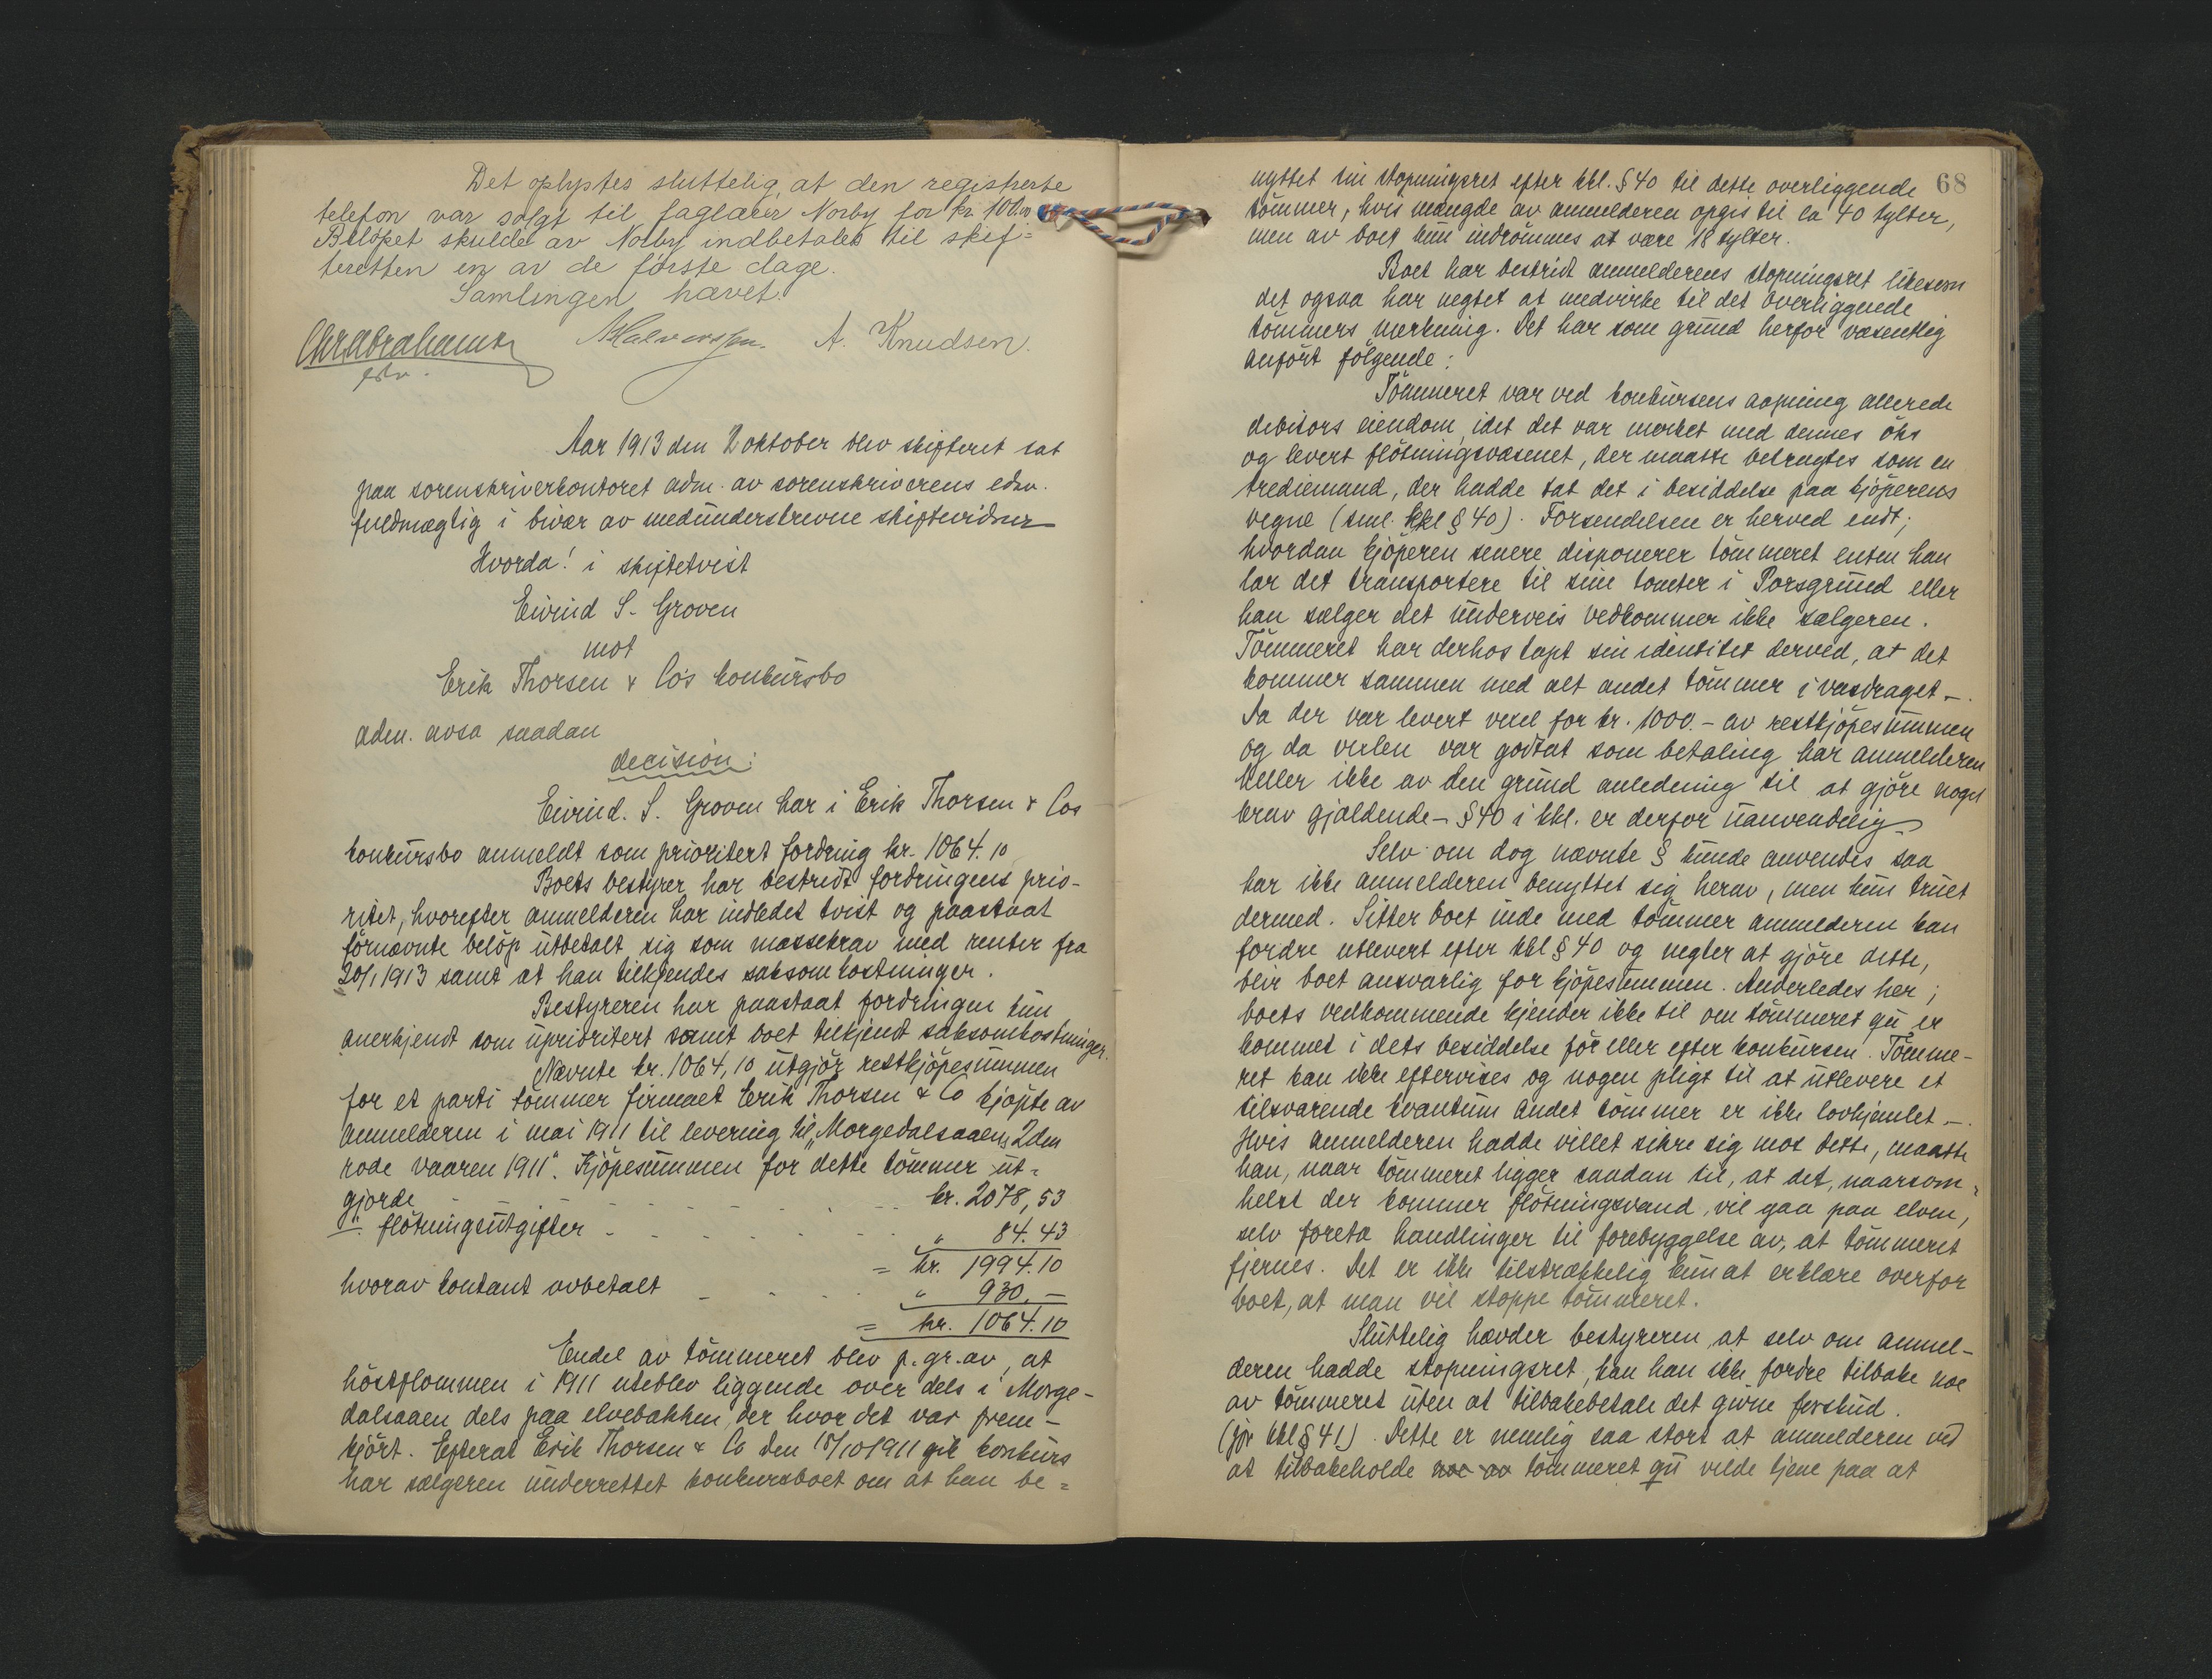 Det oplystes sluttelig, at den registrerte
telefon var solgt til faglærer Norby for kr 100.00
Beløpet skulde av Norby indbetales til skif-
teretten en av de første dage.
Samlingen hævet.
Chr Abrahamsen Halvorsen. A. Knudsen.
edsv.
Aar 1913 den 2 oktober blev skifteret sat
paa sorenskriverkontoret adm. av sorenskriverens edsv.
fuldmægtig i bivær av medunderskrevne skiftevidner
Hvorda! i skiftetvist
Eivind S. Groven
mot
Erik Thorsen & Co's konkursbo
adm. avsa saadan
decision:
Eivind. S. Groven har i Erik Thorsen & Cos
konkursbo anmeldt som prioritert fordring kr. 1064.10
Boets bestyrer har bestridt fordringens prio-
ritet, hvorefter anmelderen har indledet tvist og paastaat
førnævnte beløp utbetalt sig som massekrav med renter fra
20/1 1913 samt at han tilkjendes saksomkostninger.
Bestyreren har paastaat fordringen kun
anerkjendt som uprioritert samt boet tilkjendt saksomkostninger.
Nævnte kr. 1064,10 utgjør restkjøpesummen
for et parti tømmer firmaet Erik Thorsen & Co kjøpte av
anmelderen i mai 1911 til levering til "Morgedalsaaens 2den
rode vaaren 1911". Kjøpesummen for dette tømmer ut-
gjorde - - - - - - kr. 2078,53
÷ fløtningsutgifter - - - - - - " 84.43
= kr. 1994.10
hvorav kontant avbetalt - - - - " 930.-
= kr. 1064.10
Endel av tømmeret blev p.gr.av, at
høstflommen i 1911 uteblev liggende over dels i Morge-
dalsaaen dels paa elvebakken, der hvor det var frem-
kjørt. Efterat Erik Thorsen & Co den 15/10 1911 gik konkurs
har sælgeren underrettet konkursboet om at han be-
68
nyttet sin stopningsret efter kkl. § 40 til dette overliggende
tømmer, hvis mængde av anmelderen opgis til ca 40 tylter,
men av boet kun indrømmes at være 18 tylter.
Boet har bestridt anmelderens stopningsret likesom
det ogsaa har negtet at medvirke til det overliggende
tømmers merkning. Det har som grund herfor væsentlig
anført følgende:
Tømmeret var ved konkursens aapning allerede
debitors eiendom, idet det var merket med dennes øks
og levert fløtningsvæsenet, der maatte betragtes som en
trediemand, der hadde tat det i besiddelse paa kjøperens
vegne (sml. kkl § 40). Forsendelsen er herved endt;
hvordan kjøperen senere disponerer tømmeret enten han
lar det transportere til sine tomter i Porsgrund eller
han sælger det underveis vedkommer ikke sælgeren.
Tømmeret har derhos tapt sin identitet derved, at det
kommer sammen med alt andet tømmer i vasdraget -.
Da der var levert vexel for kr. 1000.- av restkjøpesummen
og da vexlen var godtat som betaling har anmelderen
heller ikke av den grund anledning til at gjøre noget
krav gjældende - § 40 i kkl. er derfor uanvendelig -
Selv om dog nævnte § kunde anvendes saa
har ikke anmelderen benyttet sig herav, men kun truet
dermed. Sitter boet inde med tømmer anmelderen kan
fordre utlevert efter kkl § 40 og negter at gjøre dette,
blir boet ansvarlig for kjøpesummen. Anderledes her;
boets vedkommende kjender ikke til om tømmeret qu er
kommet i dets besiddelse før eller efter konkursen. Tømme-
ret kan ikke eftervises og nogen pligt til at utlevere et
tilsvarende kvantum andet tømmer er ikke lovhjemlet -.
Hvis anmelderen hadde villet sikre sig mot dette, maatte
han, naar tømmeret ligger saadan til, at det, naarsom-
helst der kommer fløtningsvand, vil gaa paa elven,
selv foreta handlinger til forebyggelse av, at tømmeret
fjernes. Det er ikke tilstrækkelig kun at erklære overfor
boet, at man vil stoppe tømmeret.
Sluttelig hævder bestyreren, at selv om anmel-
deren hadde stopningsret, kan han ikke fordre tilbake noe
av tømmeret uten at tilbakebetale det givne forskud.
(jfr kkl § 41). Dette er nemlig saa stort at anmelderen ved
at tilbakeholde noe av tømmeret qu vilde tjene paa at